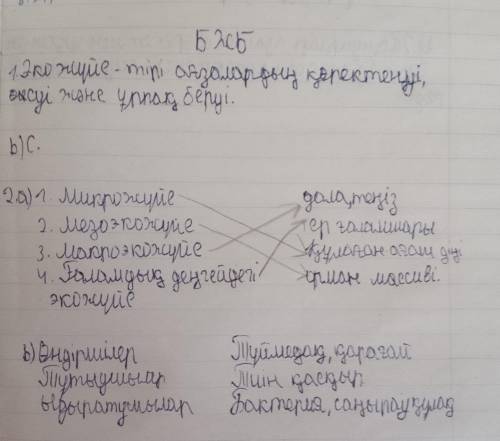 БЖБ
1. Экожүйе - тірі ағзалардың қоректенуі,
өсуі және ұрпақ беруі.
b) C.
2a) 1. Микрожүйе дала, теңіз
2. Мезоэкожүйе Жер ғаламшары
3. Макроэкожүйе Құлаған ағаш діңі
4. Ғаламдық деңгейдегі орман массиві.
экожүйе
b) Өндірушілер Түймедақ, қарағай
Тұтынушылар Тиін қасқыр
ыдыратушылар Бактерия, саңырауқұлақ